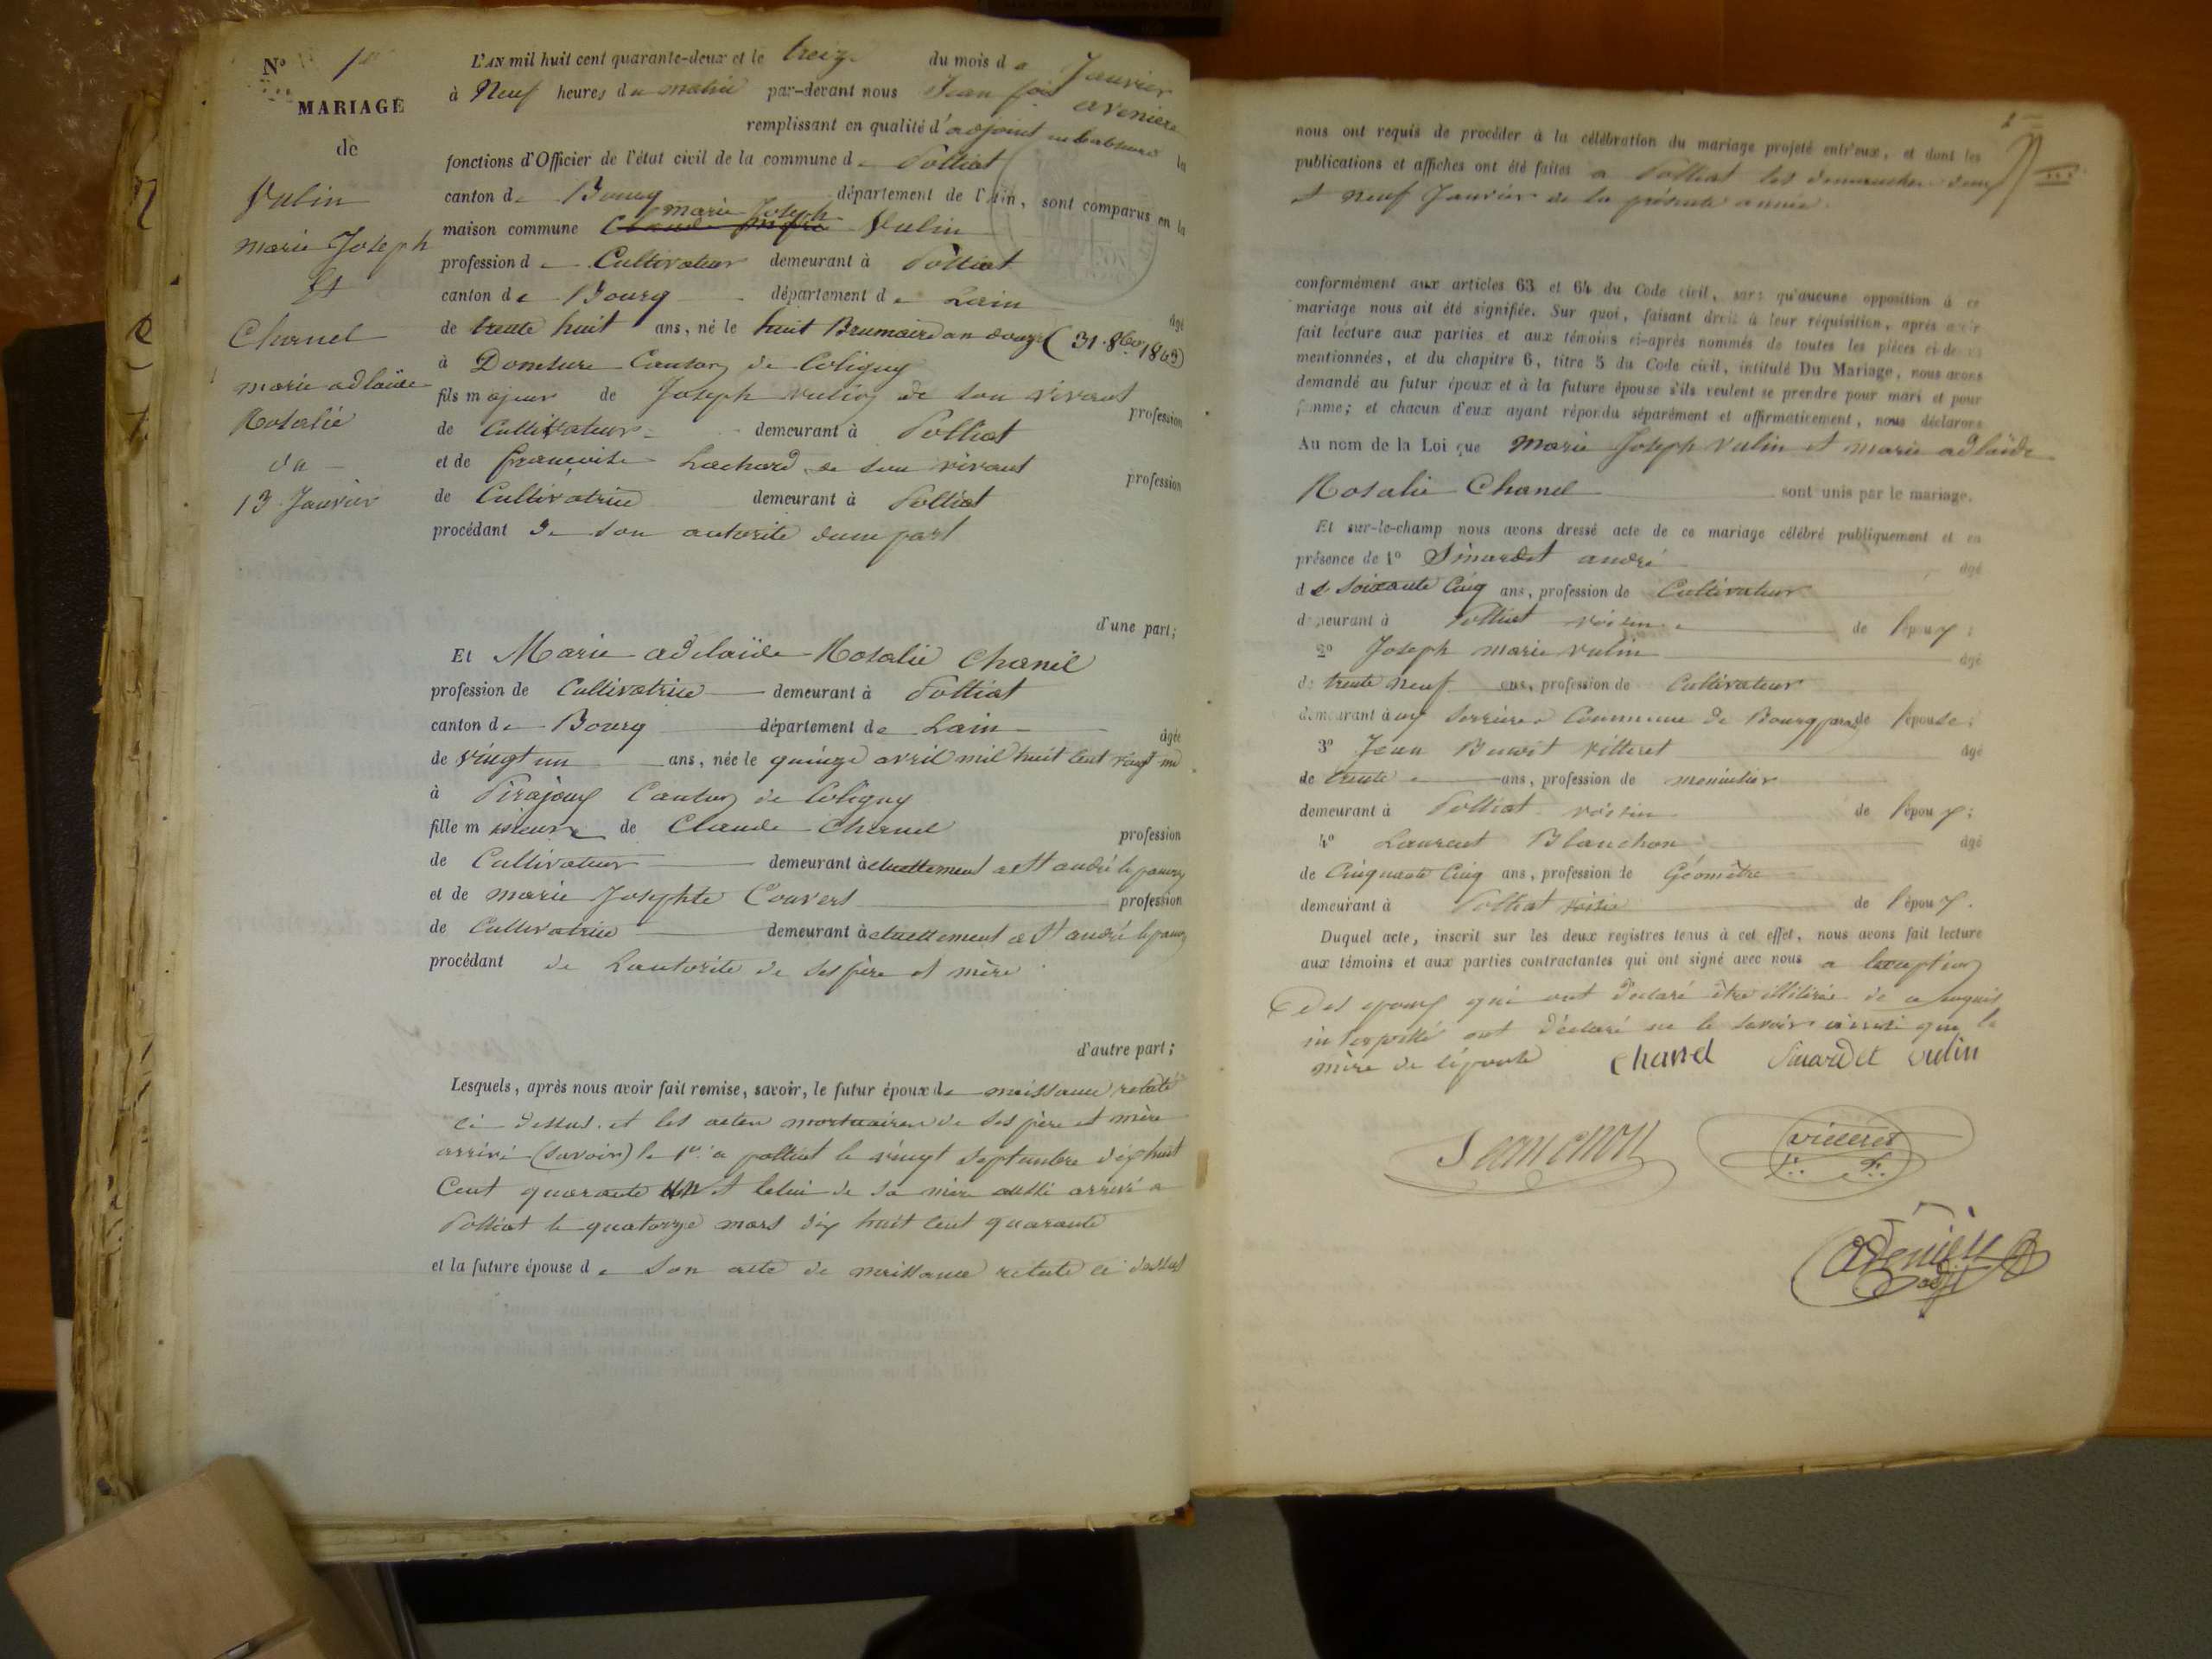 N° 1er
MARIAGE
de
Vulin
marie Joseph
Et
Charnel
marie adlaïde
Rosalie
du
13 Janvier
L'AN mil huit cent quarante-deux et le treize du mois de Janvier
à Neuf heures du matin par-devant nous Jean fois aveniere
remplissant en qualité d'adjoint la
fonctions d'Officier de l'état civil de la commune de Polliat
canton de Bourg département de l'Ain, sont comparus en la
marie Joseph
maison commune Vulin
profession de Cultivateur demeurant à Polliat
canton de Bourg département de Lain
âgé
de trente huit ans, né le huit Brumaire an douze (31 8bre 1803)
à Domsure Canton de Coligny
fils majeur de Joseph vulin de son vivant
profession
de Cultivateur demeurant à Polliat
et de francoise Lachard de son vivant
profession
de Cultivatrice demeurant à Polliat
procédant de son autorité dune part
d'une part;
Et Marie adelaïde Rosalie Chanel
profession de Cultivatrice demeurant à Polliat
canton de Bourg département de Lain
âgée
de vingt un ans, née le quinze avril mil huit cent vingt un
à Pirajoux Canton de Coligny
fille mineure de Claude Charnel profession
de Cultivateur demeurant àctuellement a St andré le panoux
et de marie Josephte Convert profession
de Cultivatrice demeurant àctuellement a St andré le panoux
procédant de Lautorité de ses père et mère
d'autre part;
Lesquels, après nous avoir fait remise, savoir, le futur époux de naissance relaté
ci dessus. et les actes mortuaires de ses père et mère
arrivé (savoir) le 1er a polliat le vingt septembre dix huit
Cent quarante un et celui de sa mère aussi arrivé a
Polliat le quatorze mars dix huit Cent quarante
et la future épouse de son acte de naissance relaté ci dessus
nous ont requis de procéder à la célébration du mariage projeté entr'eux, et dont les
publications et affiches ont été faites a Polliat les dimanches deux
et neuf Janvier de la présente année
conformément aux articles 63 et 64 du Code civil, sans qu'aucune opposition à ce
mariage nous ait été signifiée. Sur quoi, faisant droit à leur réquisition, après avoir
fait lecture aux parties et aux témoins ci-après nommés de toutes les pièces ci-dessus
mentionnées, et du chapitre 6, titre 5 du Code civil, intitulé Du Mariage, nous avons
demandé au futur époux et à la future épouse s'ils veulent se prendre pour mari et pour
femme; et chacun d'eux ayant répondu séparément et affirmativement, nous déclarons
Au nom de la Loi que marie Joseph vulin et marie adlaïde
Rosalie Chanel sont unis par le mariage.
Et sur-le-champ nous avons dressé acte de ce mariage célébré publiquement et en
présence de 1° Simardet andré âgé
de soixante Cinq ans, profession de Cultivateur
demeurant à Polliat voisin de l'époux;
2° Joseph marie vulin âgé
de trente neuf ans, profession de Cultivateur
demeurant à Commune de Bourg de l'épouse;
3° Jean Benoit Villeret âgé
de trente ans, profession de menuisier
demeurant à Polliat voisin de l'époux;
4° Laurent Blanchon âgé
de Cinquante Cinq ans, profession de Géomêtre
demeurant à Polliat voisin de l'époux.
Duquel acte, inscrit sur les deux registres tenus à cet effet, nous avons fait lecture
aux témoins et aux parties contractantes qui ont signé avec nous a lexception
des epoux qui ont déclaré être illitéré de ce enquis
interpellé ont déclaré ne le savoir ainsi que la
mère de lépouse chanel Simardet vulin
villeret
aveniere
adjt